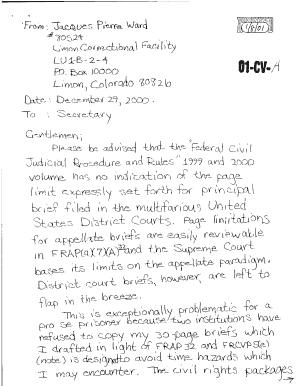 From: Jacques Pierre Ward
# 80524
Limon Correctional Facility
LU1-B-2-4
P.O. Box 10000
Limon, Colorado 80826
1/8/01
01-CV-A
Date: December 29, 2000.
To: Secretary
Gentlemen;
Please be advised that the "Federal Civil
Judicial Procedure and Rules" 1999 and 2000
volume has no indication of the page
limit expressly set forth for principal
brief filed in the multifarious United
States District Courts. Page limitations
for appellate briefs are easily reviewable
in FRAP(a)(7)(A) and the Supreme Court
bases its limits on the appellate paradigm.
District court briefs, however, are left to
flap in the breeze.
This is exceptionally problematic for a
pro se prisoner because two institutions have
refused to copy my 30-page briefs which
I drafted in light of FRAP 32 and FRCVP5(e)
(note) is designed to avoid time hazards which
I may encounter. The civil rights packages